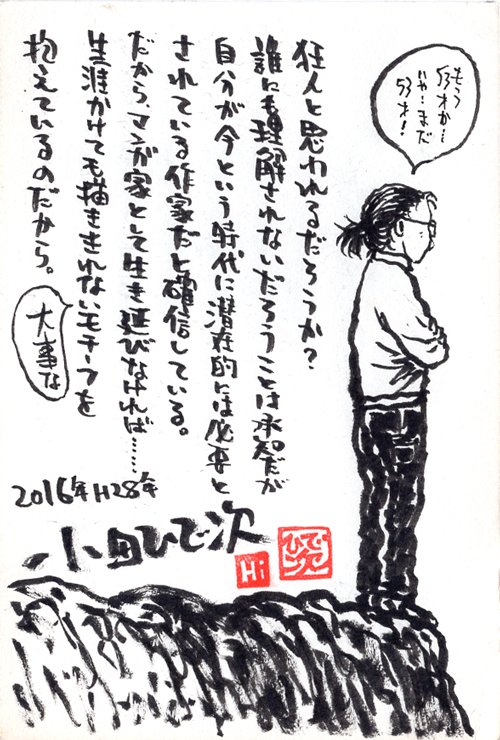 もう
53才か…
いやーまだ
53才！
狂人と思われるだろうか？
誰にも理解されないだろうことは承知だが
自分が今という時代に潜在的には必要と
されている作家だと確信している。
だからマンガ家として生き延びなければ……
生涯かけても描ききれないモチーフを
抱えているのだから。
大事な
2016年H28年
小田ひで次
Hi
ひで次